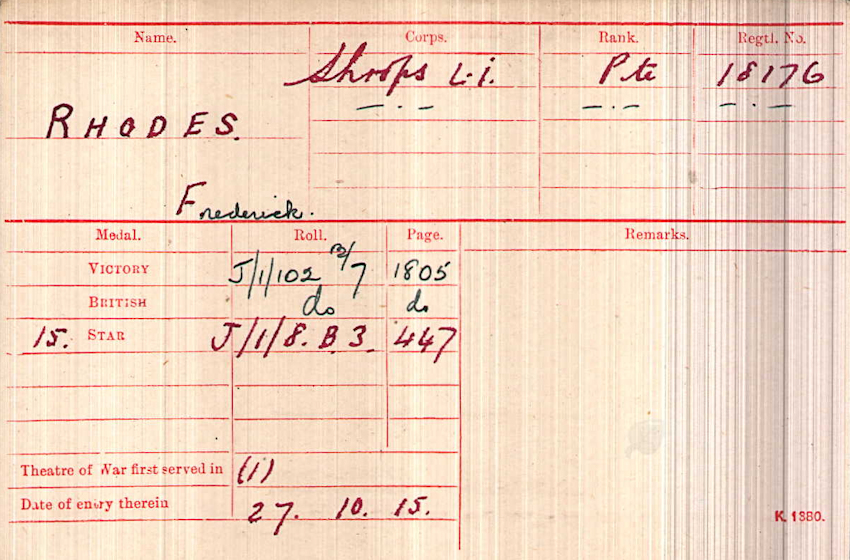 Name. Corps. Rank. Regtl. No.
Shrops L.I. Pte 18176
— . — — . — — . —
RHODES.
Frederick.
Medal. Roll. Page. Remarks.
VICTORY J/1/102 B/7 1805
BRITISH do do
15. STAR J/1/8. B 3. 447
Theatre of War first served in (1)
Date of entry therein 27. 10. 15.
K. 1380.